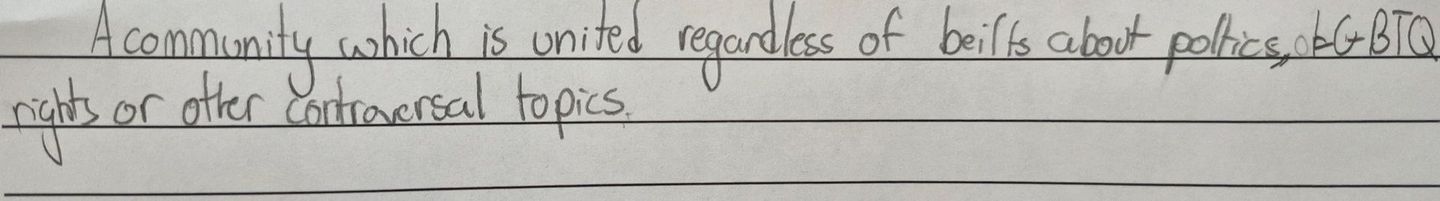 A community which is united regardless of beilfs about poltics, LGBTQ
rights or other contraversal topics.